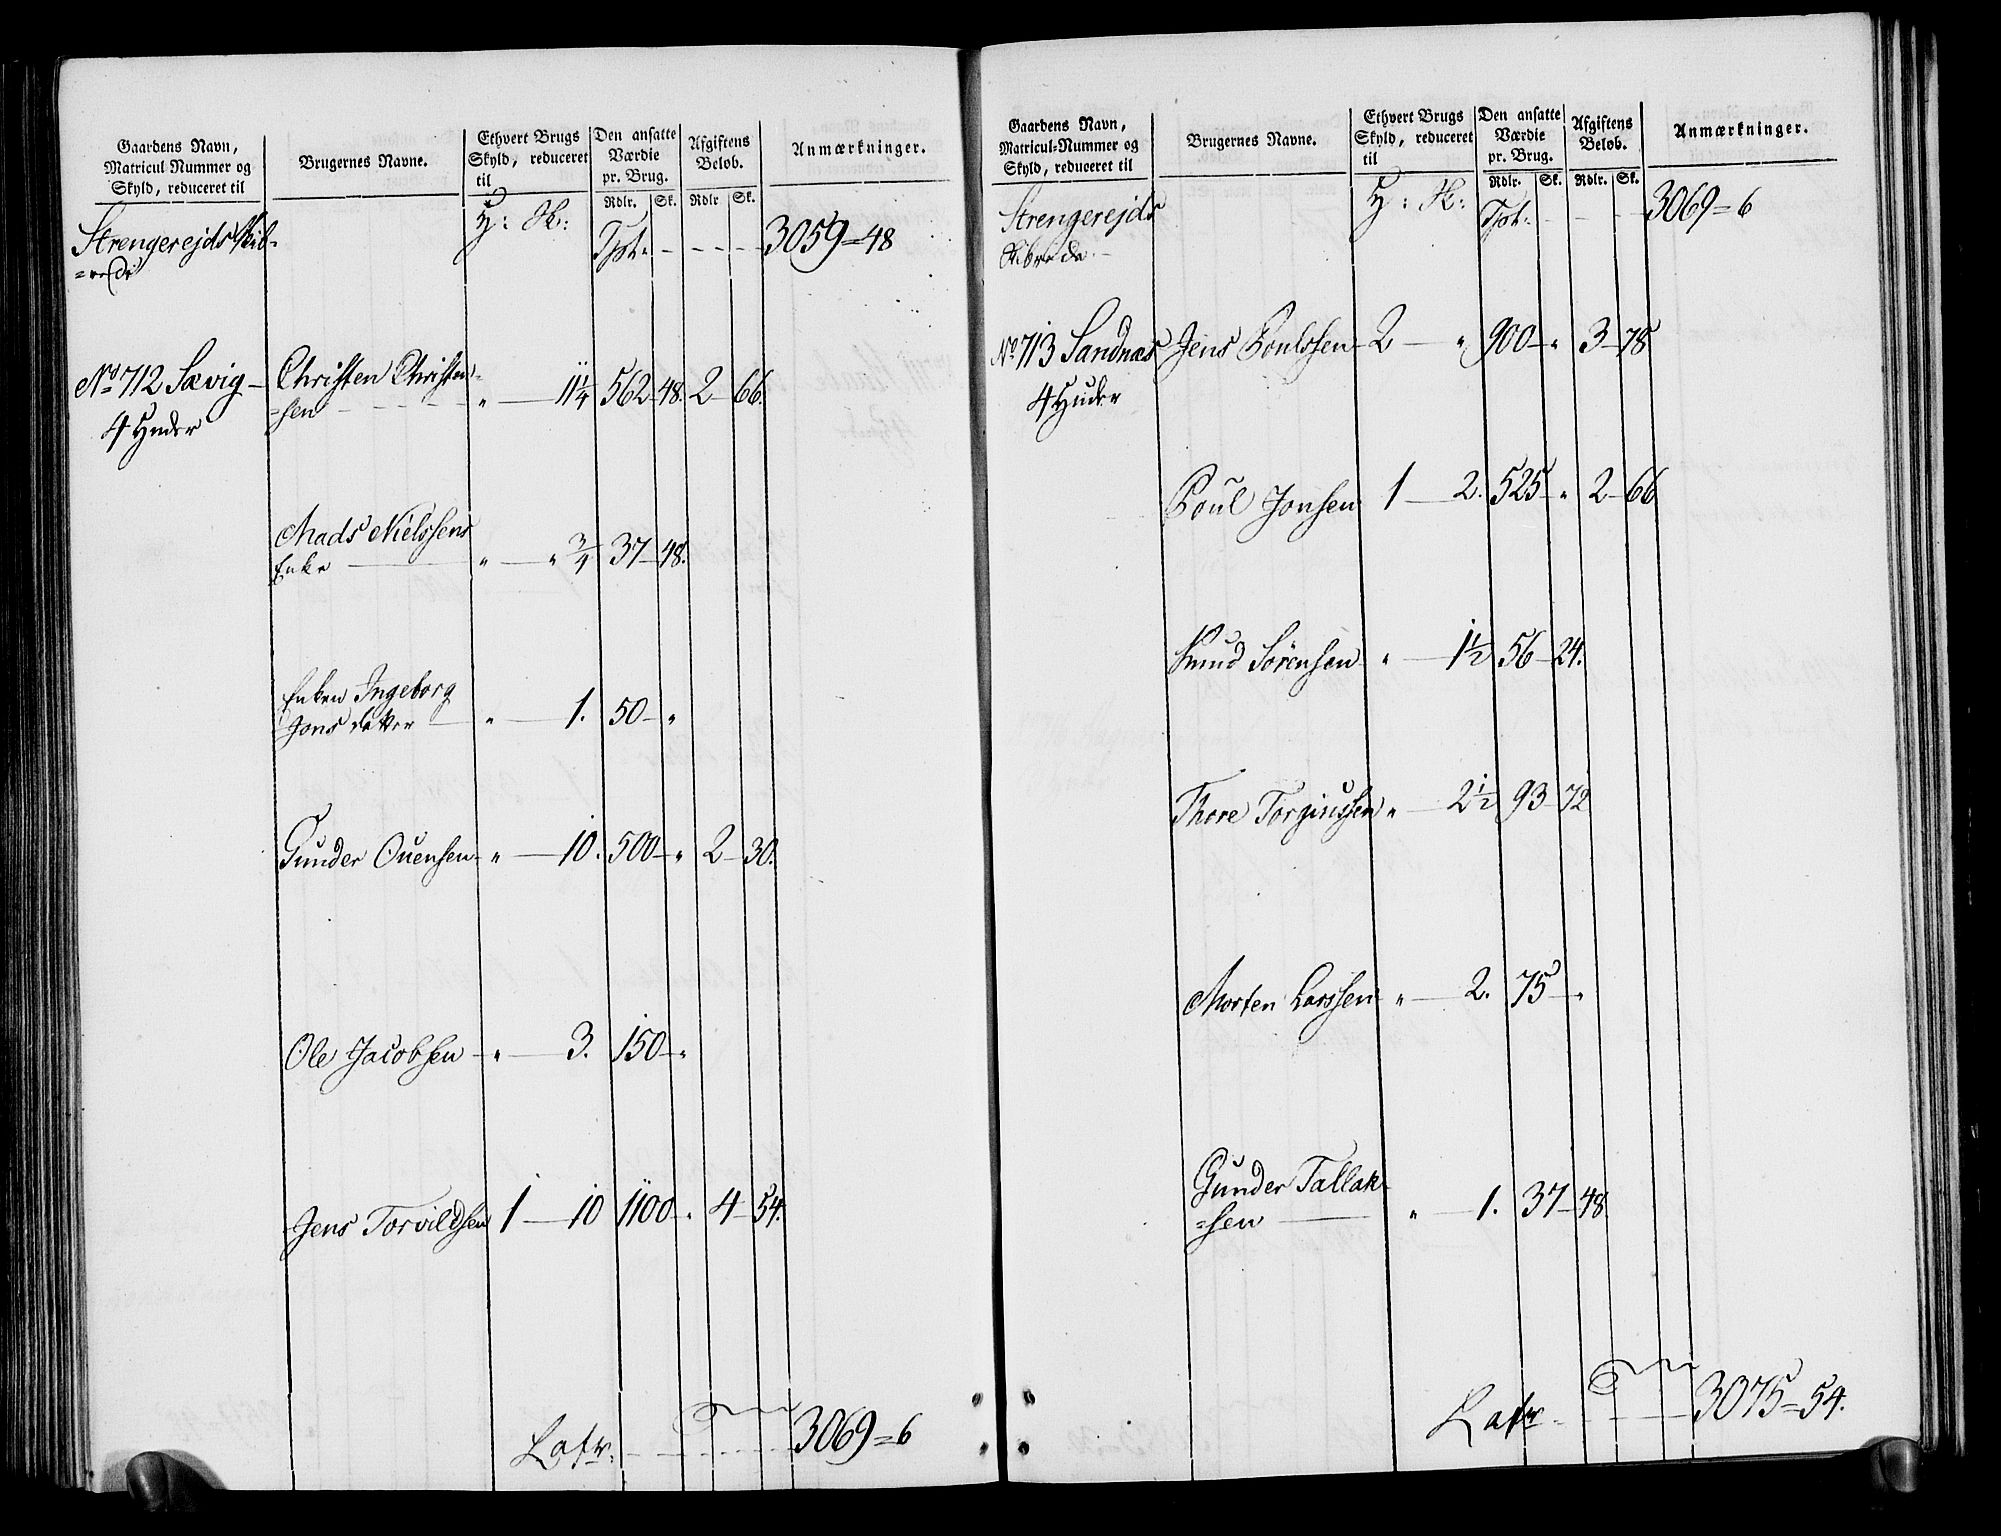 Gaardens Navn,
Matricul Nummer og
Skyld, reduceret til
Brugernes Navne.
Ethvert Brugs
Skyld, reduceret
til
Den ansatte
Værdie
pr. Brug.
Rdlr. Sk.
Afgiftens
Beløb.
Rdlr Sk.
Anmærkninger.
Strengerejds Skib-
=redi
H: Sk:
Tpt. - - - - 3059=48
No 712 Sævig - Christen Christen-
=sen - - - - " — 11¼ 562-48. 2-66.
4 Huder
Mads Nielssens
Enke — " — " ¾ 37-48.
Enken Ingeborg
Jons datter — " — 1. 50- "
Gunder Ouensen- " — 10. 500- " 2-30.
Ole Jacobsen - " — 3. 150- "
Jens Torvildsen 1 — 10 1100- " 4-54.
Latr. - - - - 3069=6
Gaardens Navn,
Matricul-Nummer og
Skyld, reduceret til
Brugernes Navne.
Ethvert Brugs
Skyld, reduceret
til
Den ansatte
Værdie
pr. Brug.
Rdlr. Sk.
Afgiftens
Beløb.
Rdlr. Sk.
Anmærkninger.
Strengerejds
Skibrede -
H: Sk:
Tpt. - - - - 3069=6
No 713 Sandnæs Jens Poulssen- 2 — " 900- " 3-78
4 Huder
Poul Jonsen 1 — 2. 525- " 2-66
Knud Sørensen " — 1½ 56-24.
Thore Torginssen " — 2½ 93-72
Morten Larssen- " — 2. 75- "
Gunder Tallak-
=sen — " — 1. 37-48
Latr - - - - 3075=54.